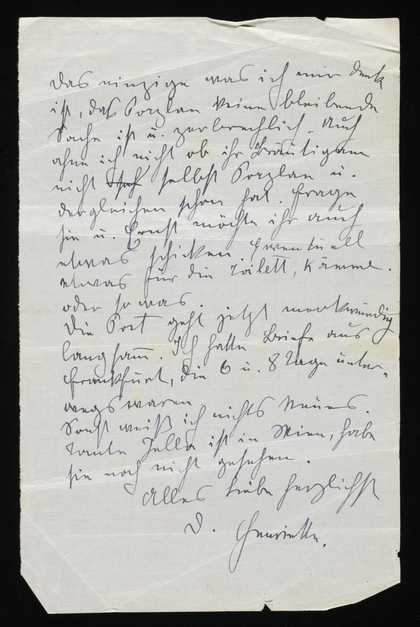 Das einzige was ich mir denk
ist, das Porzlan keine bleibende
Sache ist u. zerbrechlich. Auch
ahne ich nicht ob ihr Bräutigam
nicht selbst Porzlan u.
dergleichen schon hat. Frage
sie u. Ernst möchte ihr auch
etwas schicken. Eventuell
etwas für die Toilett, Kämme.
oder so was.
Die Post geht jetzt merkwürdig
langsam. Ich hatte Briefe aus
Frankfurt, die 6 u. 8 Tage unter-
wegs waren.
Sonst weiß ich nichts Neues.
Tante Jella ist in Wien, habe
sie noch nicht gesehen.
Alles Liebe herzlichst
D. Henriette.